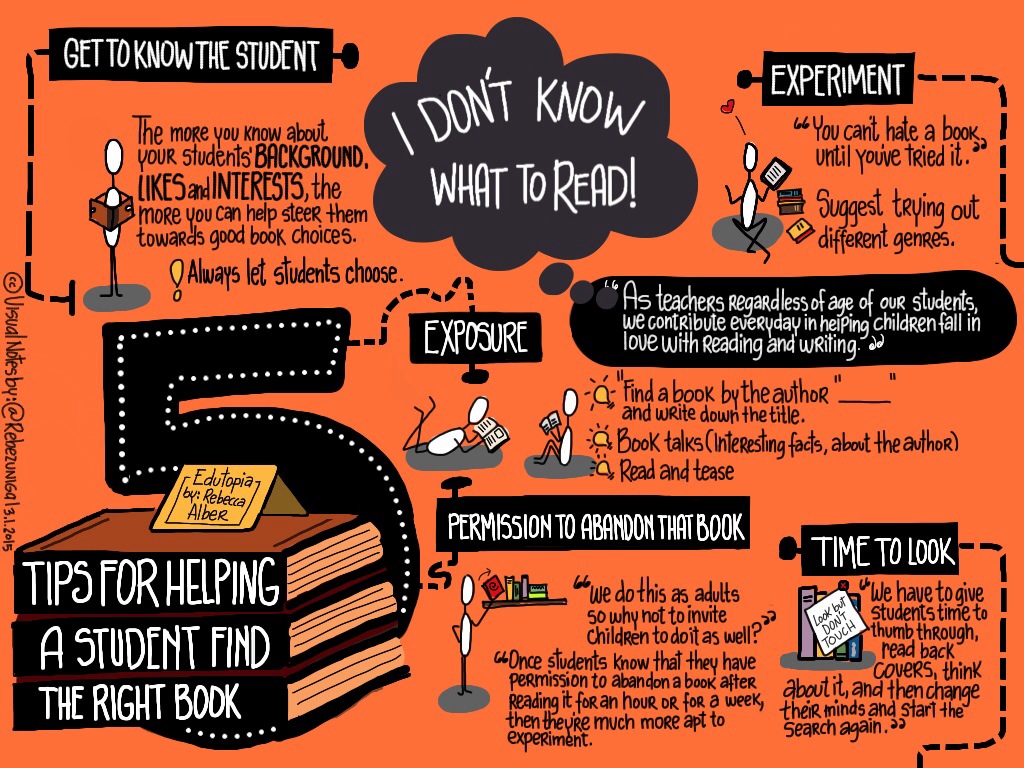 GET TO KNOW THE STUDENT
The more you know about
your students' BACKGROUND,
LIKES and INTERESTS, the
more you can help steer them
towards good book choices.
! Always let students choose.
I DON'T KNOW
WHAT TO READ!
EXPERIMENT
"You can't hate a book
until you've tried it."
Suggest trying out
different genres.
"As teachers regardless of age of our students,
we contribute everyday in helping children fall in
love with reading and writing."
EXPOSURE
"Find a book by the author "____"
and write down the title.
Book talks (Interesting facts, about the author)
Read and tease
5
Edutopia
by: Rebecca
Alber
TIPS FOR HELPING
A STUDENT FIND
THE RIGHT BOOK
PERMISSION TO ABANDON THAT BOOK
"We do this as adults
so why not to invite
children to do it as well?"
"Once students know that they have
permission to abandon a book after
reading it for an hour or for a week,
then they're much more apt to
experiment.
TIME TO LOOK
Look but
DON'T
TOUCH
"We have to give
students time to
thumb through,
read back
covers, think
about it, and then change
their minds and start the
search again."
(cc) Visual Notes by: @Rebezuniga | 3.1.2015